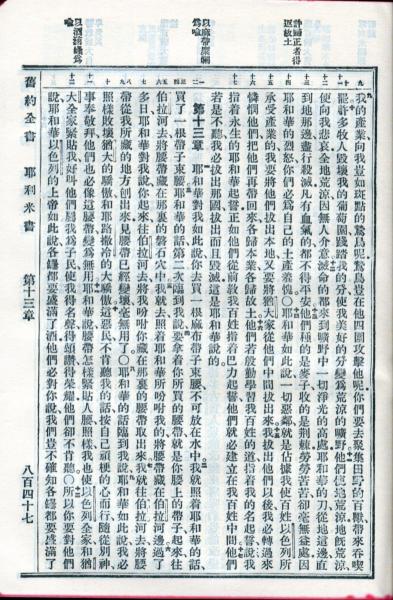 許歸正者得返故土
九 十 十一 十二 十三 十四 十五 十六 十七
我的產業向我豈如斑點的鷙鳥呢鷙鳥豈在他四圍攻擊他呢你們要去聚集田野的百獸帶來吞喫
罷許多牧人毀壞我的葡萄園踐踏我的分使我美好的分變為荒涼的曠野他們使地荒涼地既荒涼
便向我悲哀全地荒涼因無人介意滅命的都來到曠野中一切淨光的高處耶和華的刀從地這邊直
到地那邊盡行殺滅凡有血氣的都不得平安他們種的是麥子收的是荊棘勞勞苦苦卻毫無益處因
耶和華的烈怒你們必為自己的土產羞愧〇耶和華如此說一切惡鄰就是佔據我使百姓以色列所
承受產業的我要將他們拔出本地又要將猶大家從他們中間拔出來我拔出他們以後我必轉過來
憐憫他們把他們再帶回來各歸本業各歸故土他們若殷勤學習我百姓的道指着我的名起誓說我
指着永生的耶和華起誓正如他們從前教我百姓指着巴力起誓他們就必建立在我百姓中間他們
若是不聽我必拔出那國拔出而且毀滅這是耶和華說的
以麻帶腐爛為喻
第十三章 耶和華對我如此說你去買一根麻布帶子束腰不可放在水中我就照着耶和華的話
買了一根帶子束腰耶和華的話第二次臨到我說要拿着你所買的腰帶就是你腰上的帶子起來往
伯拉河去將腰帶藏在那裏的磐石穴中我就去照着耶和華所吩咐我的將腰帶藏在伯拉河邊過了
多日耶和華對我說你起來往伯拉河去將我吩咐你藏在那裏的腰帶取出來我就往伯拉河去將腰
帶從我所藏的地方刨出來見腰帶已經變壞毫無用了〇耶和華的話臨到我說耶和華如此說我必
照樣敗壞猶大的驕傲和耶路撒冷的大驕傲這惡民不肯聽我的話按自己頑梗的心而行隨從別神
事奉敬拜他們也必像這腰帶變為無用耶和華說腰帶怎樣緊貼人腰照樣我也使以色列全家和猶
大全家緊貼我好叫他們屬我為子民使我得名聲得頌讚得榮耀他們卻不肯聽〇所以你要對他們
以酒滿罈為喻
說耶和華以色列的上帝如此說各罈都要盛滿了酒他們必對你說我們豈不確知各罈都要盛滿了
舊約全書 耶利米書 第十三章 八百四十七